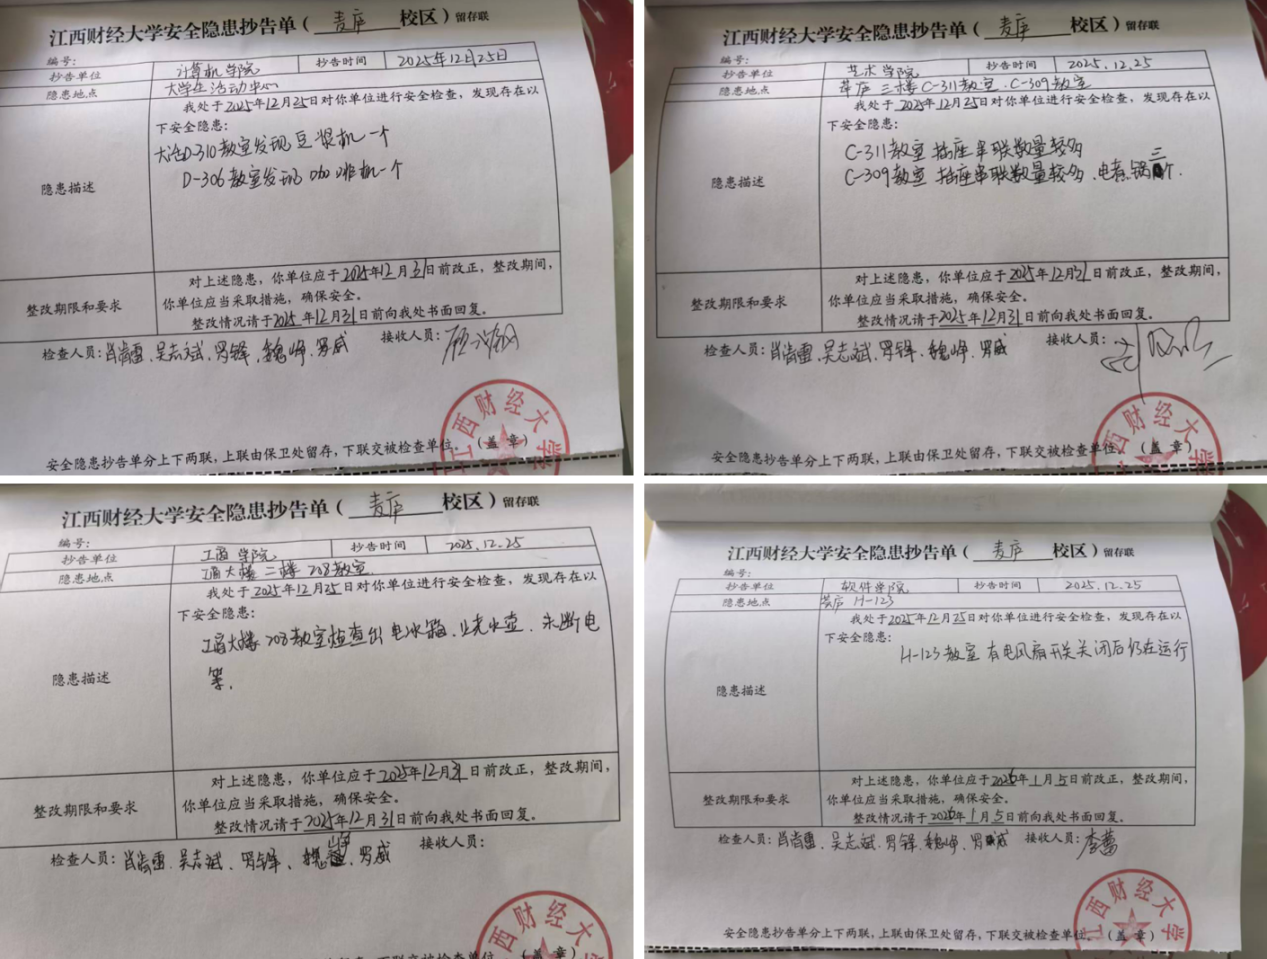 江西财经大学安全隐患抄告单（麦庐校区）留存联
编号：
抄告单位 计算机学院 抄告时间 2025年12月25日
隐患地点 大学生活动中心
我处于2025年12月25日对你单位进行安全检查，发现存在以
下安全隐患：
隐患描述
大活D-310教室发现豆浆机一个
D-306教室发现 机一个
对上述隐患，你单位应于2025年12月31日前改正，整改期间，
整改期限和要求 你单位应当采取措施，确保安全。
整改情况请于2025年12月31日前向我处书面回复。
检查人员：肖 雷、吴志斌、罗锋、魏峰、罗威 接收人员：
安全隐患抄告单分上下两联，上联由保卫处留存，下联交被检查单位。（盖章）
江西财经大学
江西财经大学安全隐患抄告单（麦庐校区）留存联
编号：
抄告单位 艺术学院 抄告时间 2025.12.25
隐患地点 庐三楼C-311教室、C-309教室
我处于2025年12月25日对你单位进行安全检查，发现存在以
下安全隐患：
隐患描述
C-311教室 插座串联数量较多
C-309教室 插座串联数量较多、电煮锅三个.
对上述隐患，你单位应于2025年12月31日前改正，整改期间，
整改期限和要求 你单位应当采取措施，确保安全。
整改情况请于2025年12月31日前向我处书面回复。
检查人员：肖 雷、吴志斌、罗锋、魏峰、罗威 接收人员：
安全隐患抄告单分上下两联，上联由保卫处留存，下联交被检查单位。（盖章）
江西财经大学
江西财经大学安全隐患抄告单（麦庐校区）留存联
编号：
抄告单位 工商学院 抄告时间 2025.12.25
隐患地点 工商大楼二楼208教室
我处于2025年12月25日对你单位进行安全检查，发现存在以
下安全隐患：
隐患描述
工商大楼208教室检查出电冰箱、烧水壶、未断电
等.
对上述隐患，你单位应于2025年12月31日前改正，整改期间，
整改期限和要求 你单位应当采取措施，确保安全。
整改情况请于2025年12月31日前向我处书面回复。
检查人员：肖 雷、吴志斌、罗锋、魏峰、罗威 接收人员：
安全隐患抄告单分上下两联，上联由保卫处留存，下联交被检查单位。（盖章）
江西财经大学
江西财经大学安全隐患抄告单（麦庐校区）留存联
编号：
抄告单位 软件学院 抄告时间 2025.12.25
隐患地点 庐 H-123
我处于2025年12月25日对你单位进行安全检查，发现存在以
下安全隐患：
隐患描述
H-123教室有电风扇开关关闭后仍在运行
对上述隐患，你单位应于2026年1月5日前改正，整改期间，
整改期限和要求 你单位应当采取措施，确保安全。
整改情况请于2026年1月5日前向我处书面回复。
检查人员：肖 雷、吴志斌、罗锋、魏峰、罗威 接收人员：李蕾
安全隐患抄告单分上下两联，上联由保卫处留存，下联交被检查单位。（盖章）
江西财经大